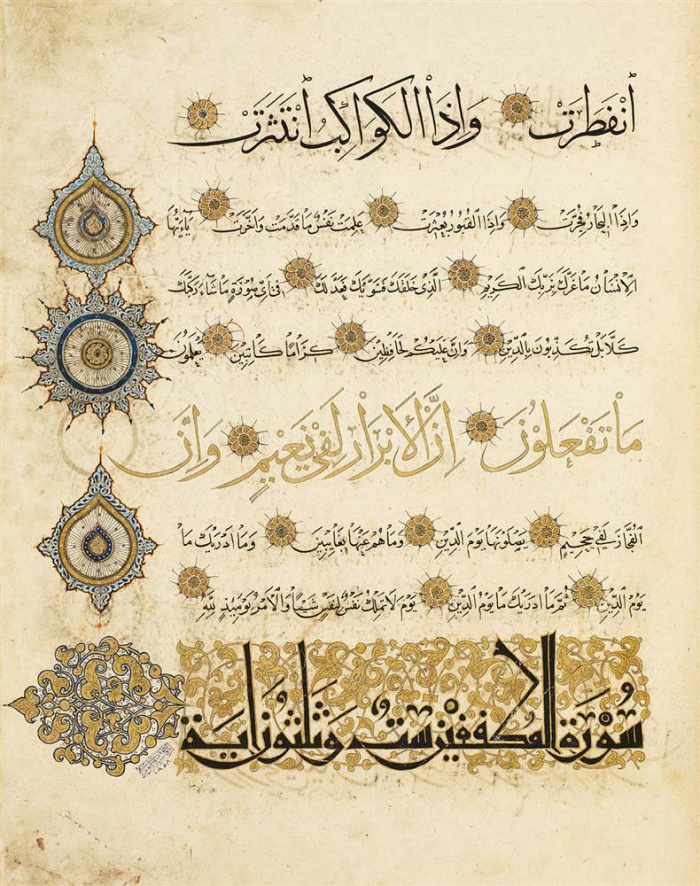 اَنْفَطَرَتْ وَاِذَا الْكَوَاكِبُ انْتَثَرَتْ
وَاِذَا الْبِحَارُ فُجِّرَتْ وَاِذَا الْقُبُورُ بُعْثِرَتْ عَلِمَتْ نَفْسٌ مَا قَدَّمَتْ وَاَخَّرَتْ يَاءَيُّهَا
الْاِنْسَانُ مَا غَرَّكَ بِرَبِّكَ الْكَرِيمِ الَّذِى خَلَقَكَ فَسَوَّيكَ فَعَدَلَكَ فِى اَىِّ صُورَةٍ مَا شَاءَ رَكَّبَكَ
كَلَّا بَلْ تُكَذِّبُونَ بِالدِّينِ وَاِنَّ عَلَيْكُمْ لَحَافِظِينَ كِرَامًا كَاتِبِينَ يَعْلَمُونَ
مَا تَفْعَلُونَ اِنَّ الْاَبْرَارَ لَفِى نَعِيمٍ وَاِنَّ
الْفُجَّارَ لَفِى جَحِيمٍ يَصْلَوْنَهَا يَوْمَ الدِّينِ وَمَا هُمْ عَنْهَا بِغَايِبِينَ وَمَا اَدْرَيكَ مَا
يَوْمُ الدِّينِ ثُمَّ مَا اَدْرَيكَ مَا يَوْمُ الدِّينِ يَوْمَ لَا تَمْلِكُ نَفْسٌ لِنَفْسٍ شَيْئًا وَالْاَمْرُ يَوْمَئِذٍ لِلّٰهِ
سُورَة المطففين ست وثلثون اية